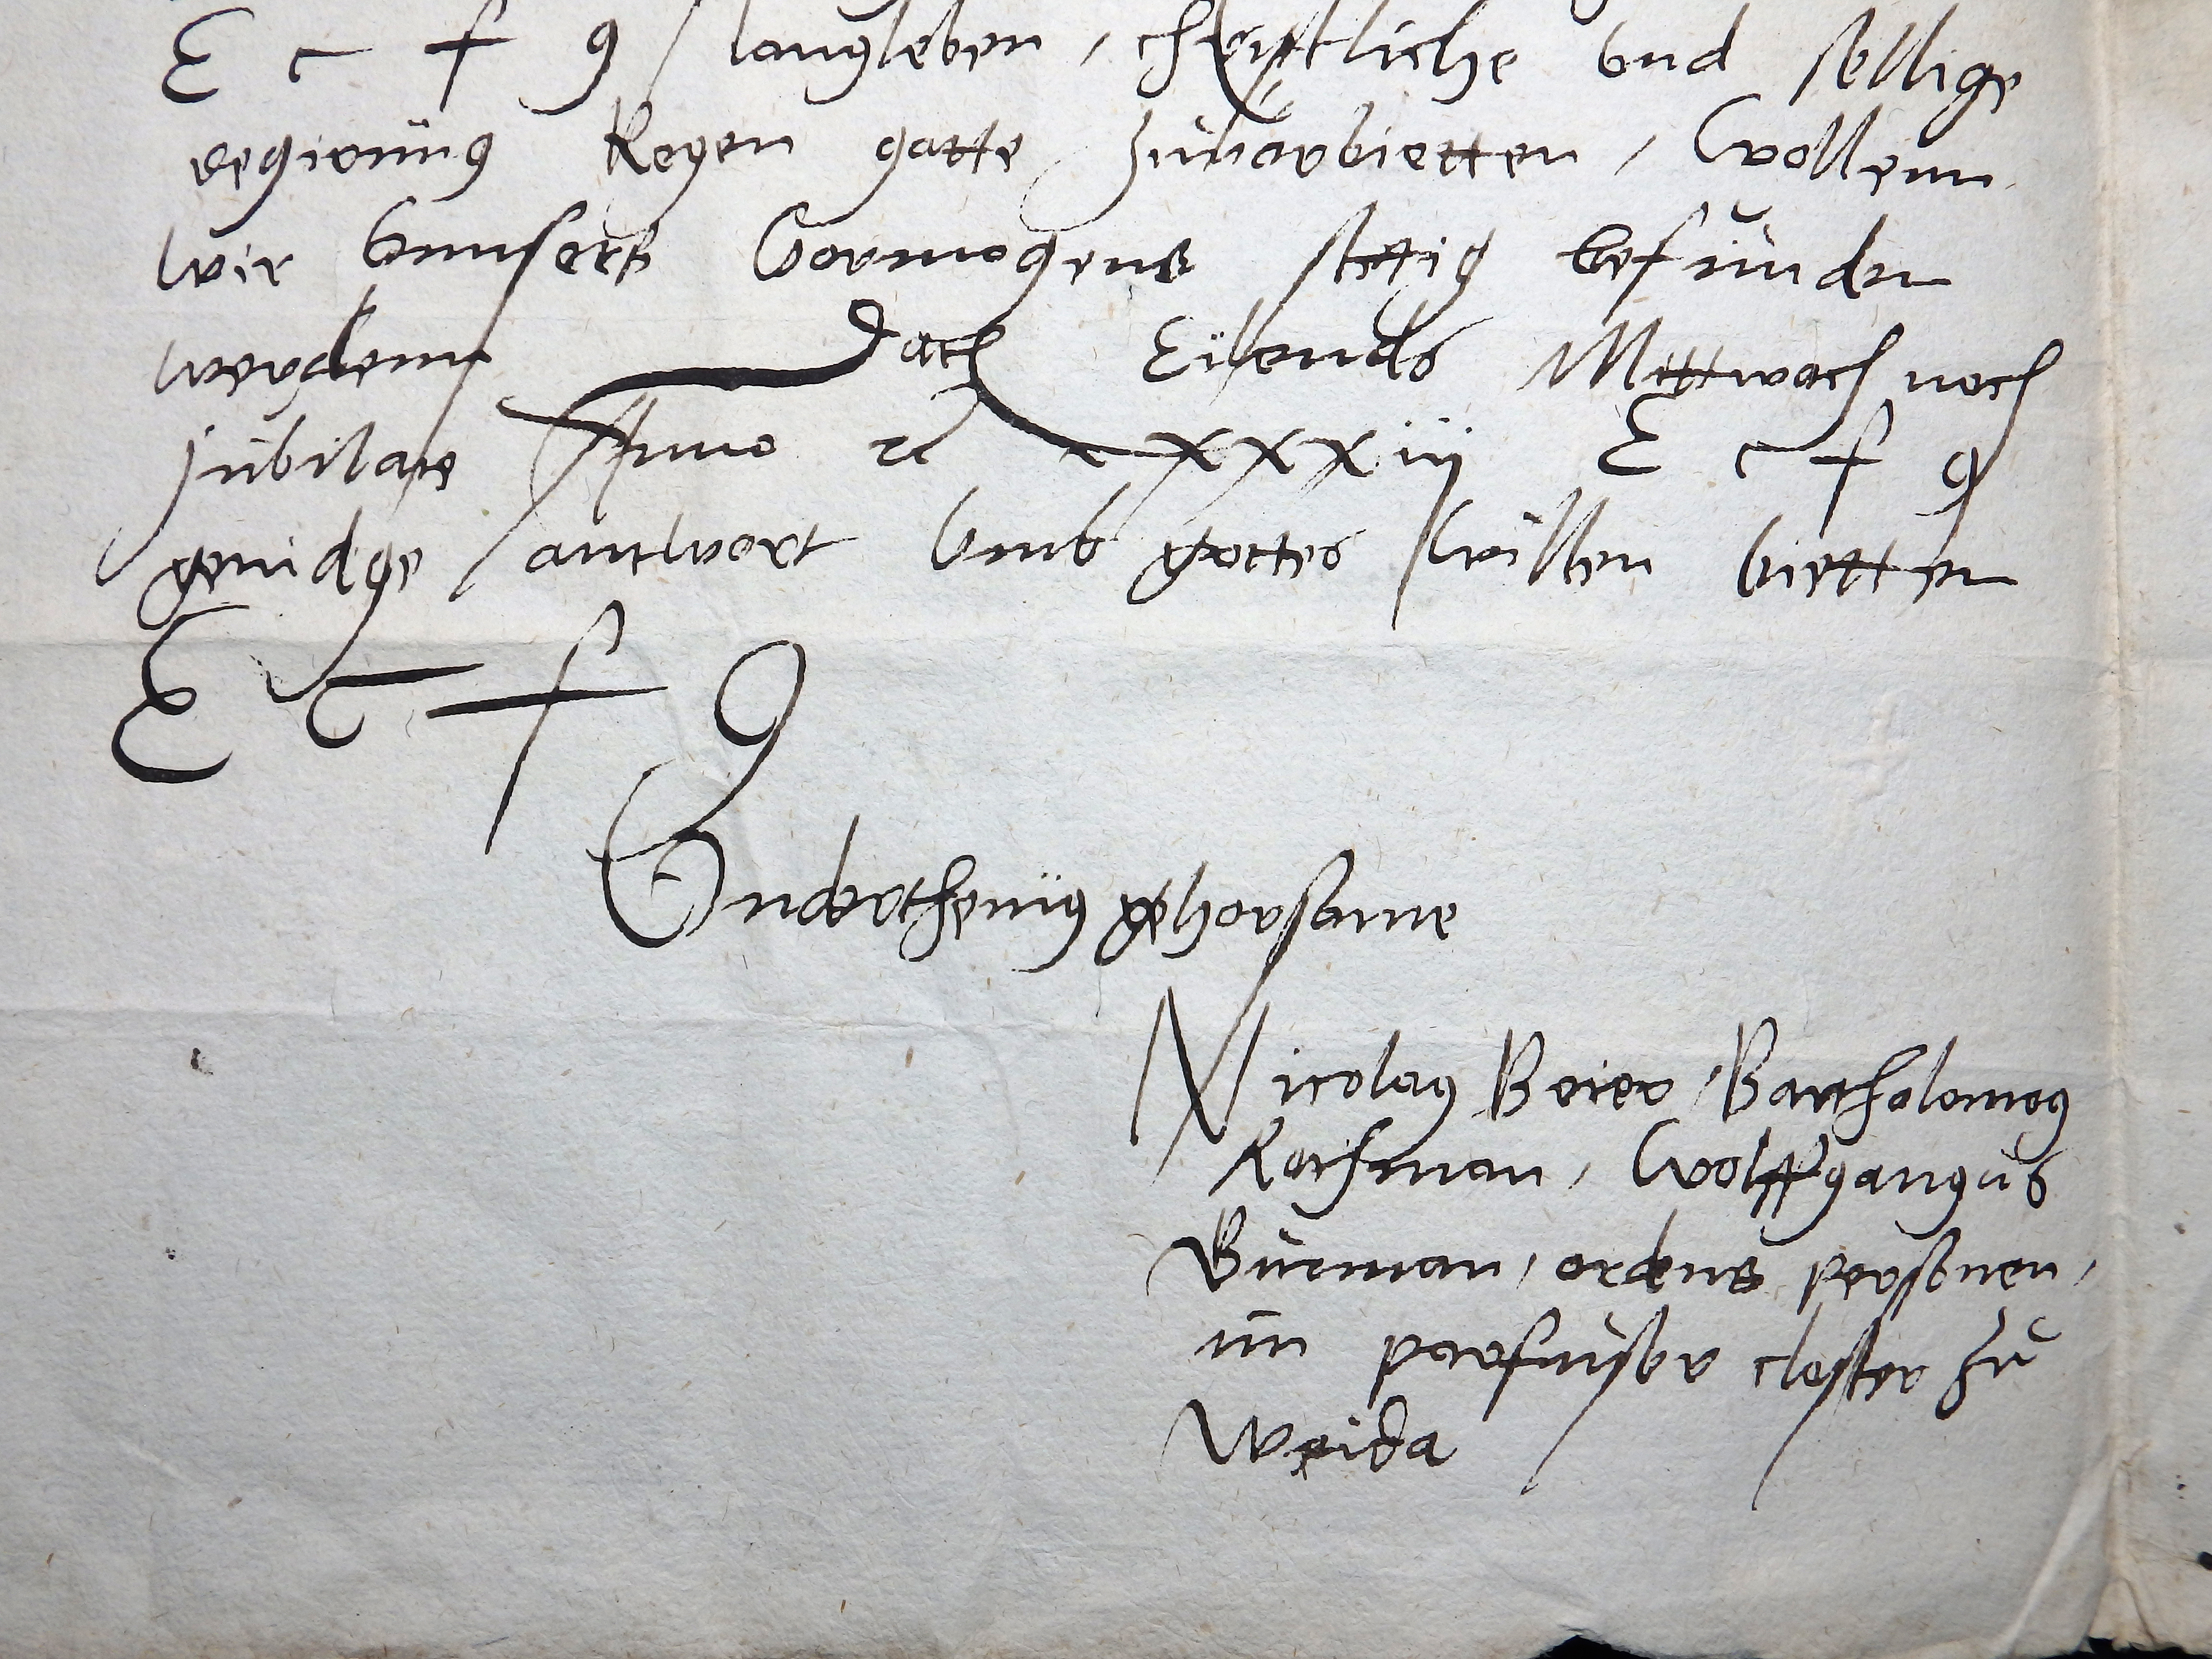 E c f g langleben, christliche vnd sellige
regirung kegen gotte zuuorbietten, wollenn
wir vnnsers vormogens stettig befunden
werdenn Dath Eilends Mittwoch noch
jubilate Anno ɾc xxxiii E c f g
genidge antwort vmb gottes willen bietten
E c f g
Vnderthenig gehorsame
Nicolaq Beier, Bartholomeq
Kofman, Wolffgangus
Burman, ordens personen,
im parfusser closter zu
Weida